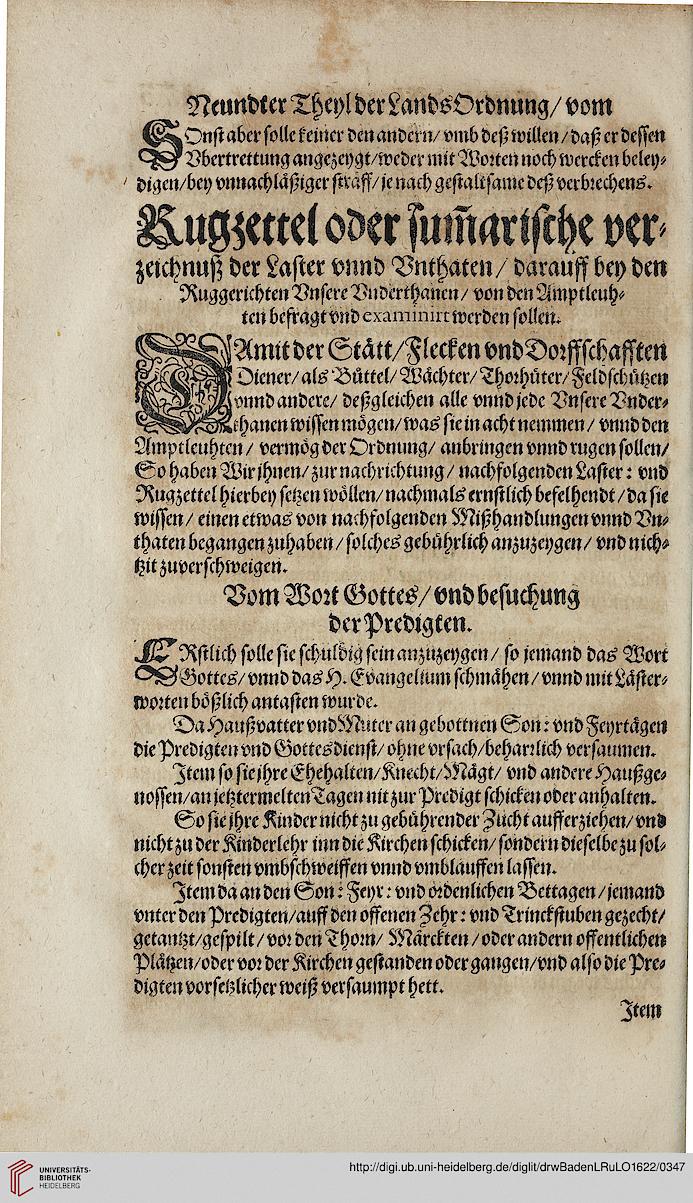 Neundter Theyl der LandsOrdnung/ vom
SOnst aber solle keiner den andern/ vmb deß willen/ daß er dessen
Vbertrettung angezeygt/ weder mit Worten noch wercken beley-
digen/ bey vnnachläßiger sträff/ je nach gestaltsame deß verbrechens.
Rugzettel oder sum̄arische ver-
zeichnuß der Laster vnnd Vnthaten/ darauff bey den
Ruggerichten Vnsere Vnderthanen/ von den Amptleuh-
ten befragt vnd examinirt werden sollen.
DAmit der Stätt/ Flecken vnd Dorffschafften
Diener/ als Büttel/ Wächter/ Thorhüter/ Feldschützen
vnnd andere/ deßgleichen alle vnnd jede Vnsere Vnder-
thanen wissen mögen/ was sie in acht nemmen/ vnnd den
Amptleuhten/ vermög der Ordnung/ anbringen vnnd rugen sollen/
So haben Wir ihnen/ zur nachrichtung/ nachfolgenden Laster: vnd
Rugzettel hierbey setzen wöllen/ nachmals ernstlich befelhendt/ da sie
wissen/ einen etwas von nachfolgenden Mißhandlungen vnnd Vn-
thaten begangen zuhaben/ solches gebührlich anzuzeygen/ vnd nich-
tzit zuverschweigen.
Vom Wort Gottes/ vnd besuchung
der Predigten.
ERstlich solle sie schuldig sein anzuzeygen/ so jemand das Wort
Gottes/ vnnd das H. Evangelium schmähen/ vnnd mit Läster-
worten bößlich antasten wurde.
Da Haußvatter vnd Muter an gebottnen Son: vnd Feyrtägen
die Predigten vnd Gottesdienst/ ohne vrsach/ beharrlich versaumen.
Item so sie jhre Ehehalten/ Knecht/ Mägt/ vnd andere Haußge-
nossen/ an jetztermelten Tagen nit zur Predigt schicken oder anhalten.
So sie jhre Kinder nicht zu gebührender Zucht aufferziehen/ vnd
nicht zu der Kinderlehr inn die Kirchen schicken/ sondern dieselbe zu sol-
cher zeit sonsten vmbschweiffen vnnd vmblauffen lassen.
Item da an den Son: Feyr: vnd ordenlichen Bettagen/ jemand
vnter den Predigten/ auff den offenen Zehr: vnd Trinckstuben gezecht/
getantzt/ gespilt/ vor den Thorn/ Märckten/ oder andern offentlichen
Plätzen/ oder vor der Kirchen gestanden oder gangen/ vnd also die Pre-
digten vorsetzlicher weiß versaumpt hett.
Item
UNIVERSITÄTS-
BIBLIOTHEK
HEIDELBERG
http://digi.ub.uni-heidelberg.de/diglit/drwBadenLRuLO1622/0347